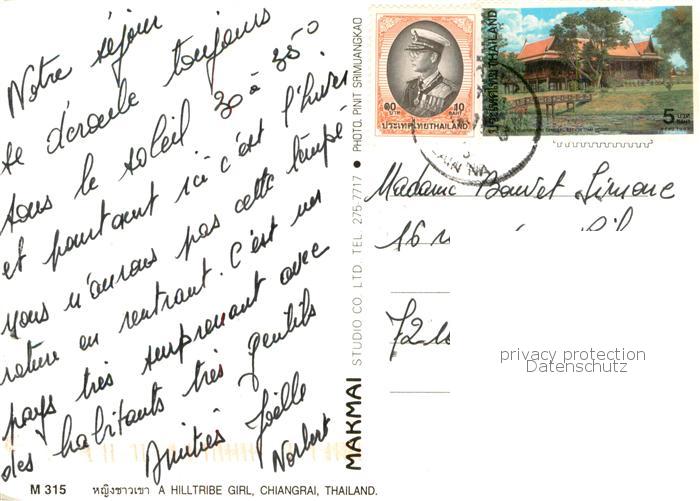 Notre séjour
se déroule toujours
sous le soleil 30 à 35°
et pourtant ici c'est l'hiver
nous n'aurons pas cette tempé
rature en rentrant. C'est un
pays très surprenant avec
des habitants très gentils
Amitiés Joëlle
Norbert
M 315 หญิงชาวเขา A HILLTRIBE GIRL, CHIANGRAI, THAILAND.
MAKMAI STUDIO CO. LTD. TEL. 275-7717 • PHOTO. PINIT SRIMUANGKAO
๑๐ บาท 10 BAHT
ประเทศไทย THAILAND
ประเทศไทย THAILAND
5 บาท BAHT
Madame Simone
16
72
privacy protection
Datenschutz